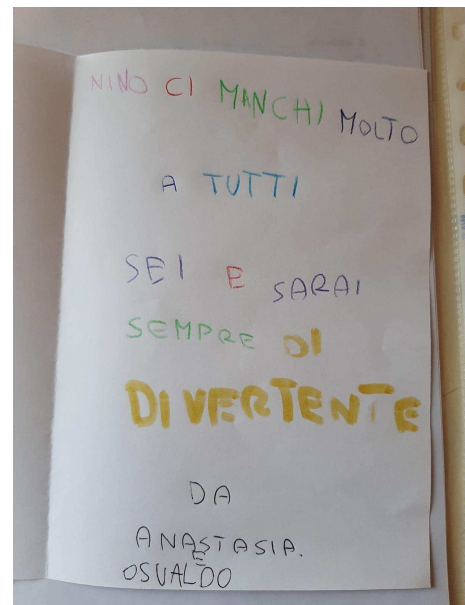 NINO CI MANCHI MOLTO
A TUTTI
SEI E SARAI
SEMPRE DI
DIVERTENTE
DA
ANASTASIA.
E
OSVALDO